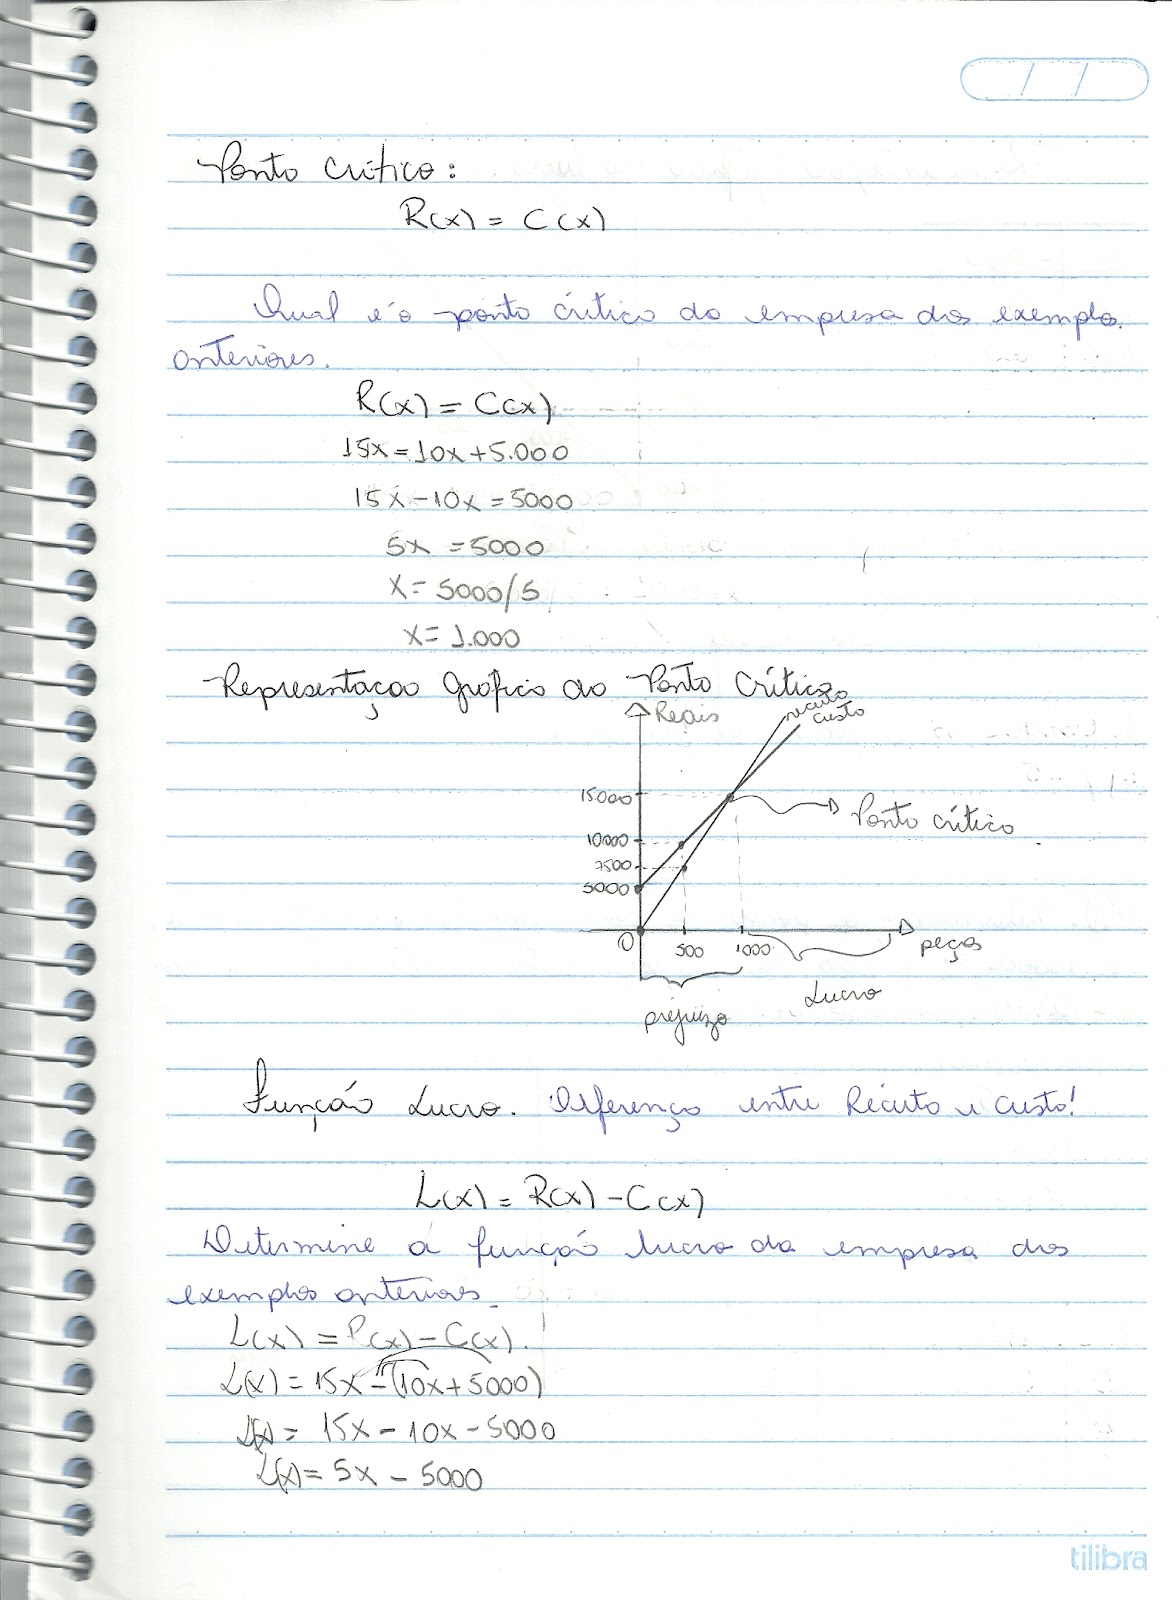 Ponto Crítico:
R(x) = C(x)
Qual é o ponto crítico da empresa dos exemplos
anteriores.
R(x) = C(x)
15x = 10x + 5.000
15x - 10x = 5000
5x = 5000
x = 5000/5
x = 1.000
Representaçao Gráfica do Ponto Crítico
Reais
receita
custo
15000
Ponto crítico
10000
7500
5000
0
500
1000
peças
Lucro
prejuizo
Função Lucro. Diferença entre Receita e custo!
L(x) = R(x) - C(x)
Determine a função lucro da empresa dos
exemplos anteriores.
L(x) = R(x) - C(x).
L(x) = 15x - (10x + 5000)
L(x) = 15x - 10x - 5000
L(x) = 5x - 5000
tilibra